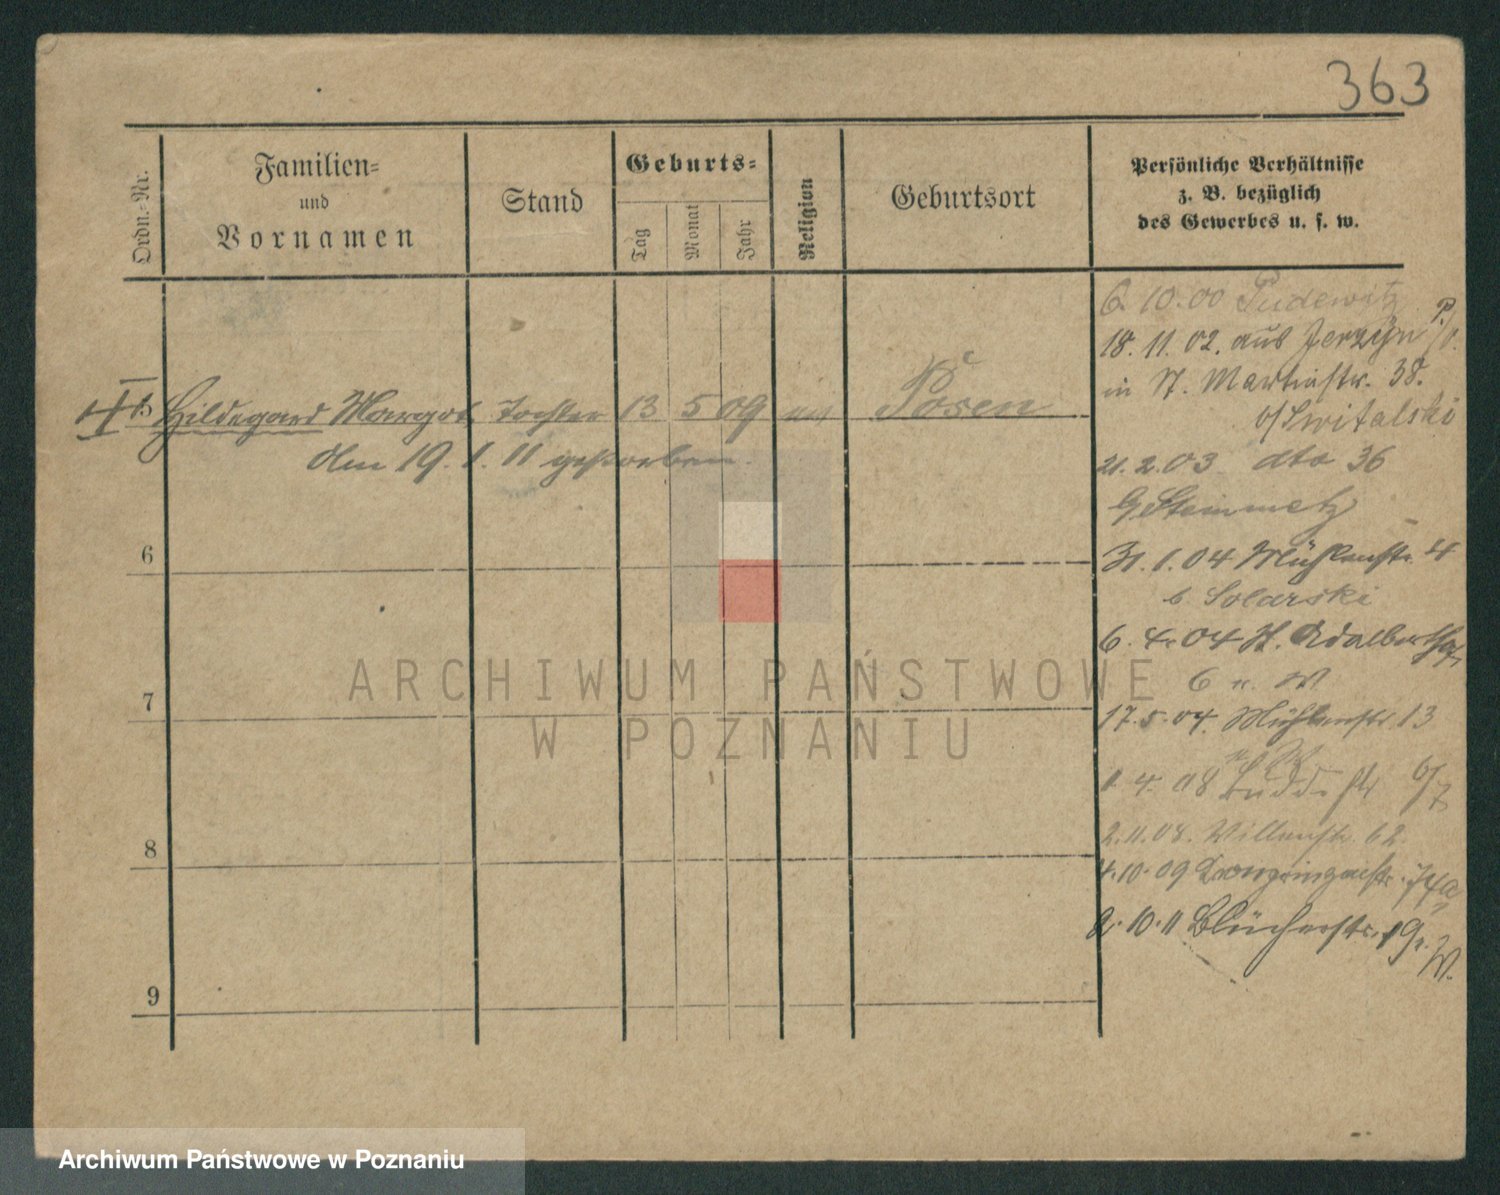 363
Ordn.-Nr.
Familien-
und
Vornamen
Stand
Geburts-
Tag
Monat
Jahr
Religion
Geburtsort
Persönliche Verhältnisse
z. B. bezüglich
des Gewerbes u. s. w.
6. 10. 00 Pudewitz
18. 11. 02. aus Jerzyn
in St. Martinstr. 38.
b/Switalski
5 Hildegard Margot Tochter 13 5 09 Posen
Am 19. 1. 11 gestorben.
21. 2. 03 dto 36
Steinmetz
31. 1. 04 Mühlenstr. 4
b. Solarski
6. 4. 04 St. Adalbertstr.
6
17. 5. 04. Mühlenstr. 13
1. 4. 08 Buddestr
2. 11. 08. 62.
4. 10. 09
2. 10. 11 Blücherstr. 19
W.
6
7
8
9
ARCHIWUM PAŃSTWOWE
W POZNANIU
Archiwum Państwowe w Poznaniu